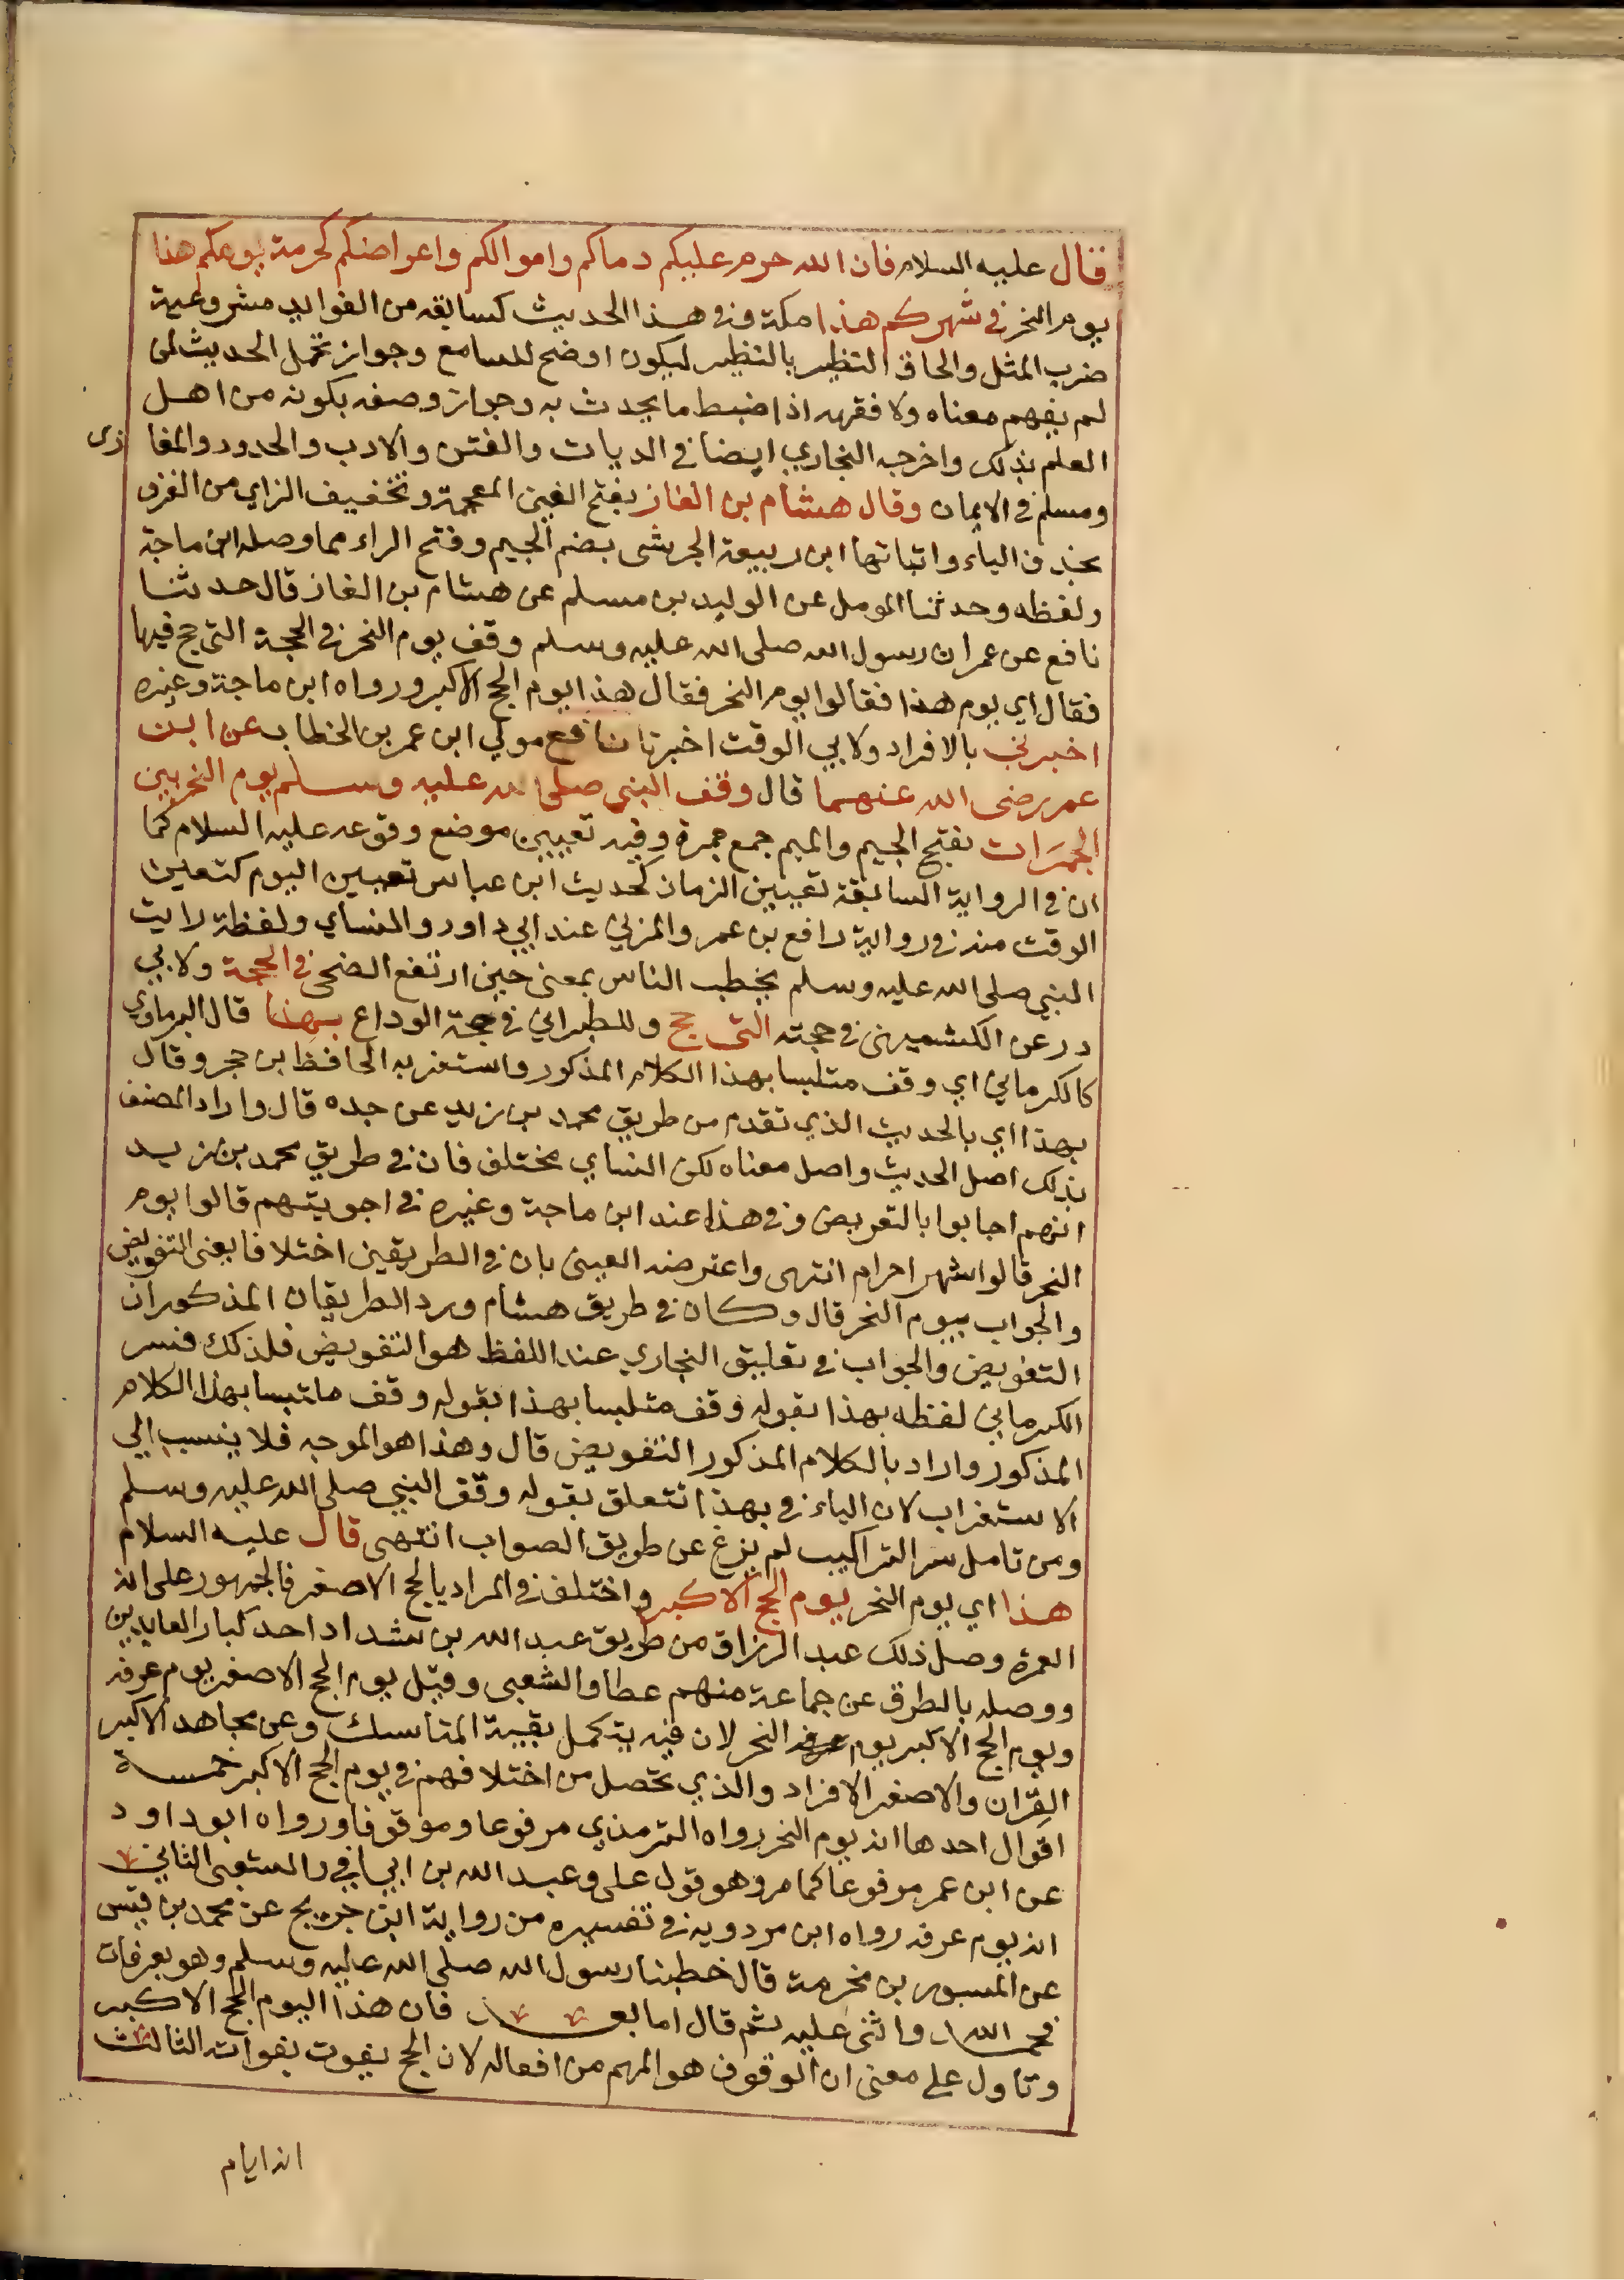 فقال عليه السلام فان الله حرم عليكم دماكم واموالكم واعراضكم كحرمة يومكم هذا
يوم النحر في شهركم هذا مكة وفي هذا الحديث كسابقه من الفوايد مشروعية
ضرب المثل والحاق النظير بالنظير ليكون اوضح للسامع وجواز تحمل الحديث لمن
لم يفهم معناه ولا فقهه اذا ضبط ما يحدث به وجواز وصفه بكونه من اهل
العلم بذلك واخرجه البخاري ايضا في الديات والفتن والادب والحدود والمغازى
ومسلم في الايمان وقال هشام بن الغاز بفتح الغين المعجمة وتخفيف الزاي من الغزو
بحذف الياء واثباتها ابن ربيعة الجرشى بضم الجيم وفتح الراء مما وصله ابن ماجة
ولفظه وحدثنا المومل عن الوليد بن مسلم عن هشام بن الغاز قال حدثنا
نافع عن عمر ان رسول الله صلى الله عليه وسلم وقف يوم النحر في الحجة التي حج فيها
فقال اي يوم هذا فقالوا يوم النحر فقال هذا يوم الحج الاكبر ورواه ابن ماجة وغيره
اخبرني بالافراد ولابي الوقت اخبرنا نافع مولي ابن عمر بن الخطاب عن ابن
عمر رضى الله عنهما قال وقف النبي صلى الله عليه وسلم يوم النحر بين
الجمرات بفتح الجيم والميم جمع جمرة وفيه تعيين موضع وقوعه عليه السلام كما
ان في الرواية السابقة تعيين الزمان كحديث ابن عباس تعيين اليوم كتعين
الوقت منه في رواية رافع بن عمر والمزني عند ابي داود والنساي ولفظه رايت
النبي صلى الله عليه وسلم يخطب الناس بمعنى حين ارتفع الضحى في الحجة ولابي
در عن الكشميهنى في حجته التى حج وللطبراني في حجة الوداع بهذا قال البرماوي
كالكرماني اي وقف متلبسا بهذا الكلام المذكور واستغربه الحافظ ابن حجر وقال
بهذا اي بالحديث الذي تقدم من طريق محمد بن زيد عن جده قال واراد المصنف
بذلك اصل الحديث واصل معناه لكن النساي مختلف فان في طريق محمد بن زيد
انهم اجابوا بالتعويض وفي هذا عند ابن ماجة وغيره في اجوبتهم قالوا يوم
النحر قالوا شهر احرام انتهى واعترضه العينى بان في الطريقين اختلافا يعنى التفويض
والجواب بيوم النحر قال وكان في طريق هشام ورد الطريقان المذكوران
التفويض والجواب في تعليق البخاري عند اللفظ هو التفويض فلذلك فسر
الكرماني لفظه بهذا بقوله وقف متلبسا بهذا بقوله وقف ملتبسا بهذا الكلام
المذكور واراد بالكلام المذكور التفويض قال وهذا هو الموجه فلا ينسب الي
الاستغراب لان الياء في بهذا تتعلق بقوله وقف النبي صلى الله عليه وسلم
ومن تامل سر التراكيب لم يزغ عن طريق الصواب انتهى قال عليه السلام
هذا اي يوم النحر يوم الحج الاكبر واختلف في المراد بالحج الاصغر فالجمهور على انه
العمرة وصل ذلك عبد الرزاق من طريق عبد الله بن شداد احد كبار العابدين
ووصله بالطرق عن جماعة منهم عطا والشعبى وقيل يوم الحج الاصغر يوم عرفه
ويوم الحج الاكبر يوم النحر لان فيه يتكمل بقية المناسك وعن مجاهد الاكبر
القِران والاصغر الافراد والذي تحصل من اختلافهم في يوم الحج الاكبر خمسة
اقوال احدها انه يوم النحر رواه الترمذي مرفوعا وموقوفا ورواه ابوداود
عن ابن عمر مرفوعا كما مر وهو قول على وعبد الله بن ابي اوفى والشعبى الثاني
انه يوم عرفه رواه ابن مردوية في تفسيره من رواية ابن جريج عن محمد بن قيس
عن المسور بن مخرمة قال خطبنا رسول الله صلى الله عليه وسلم وهو بعرفات
فحمد الله واثنى عليه ثم قال اما بعد فان هذا اليوم الحج الاكبر
وتاول على معنى ان الوقوف هو المهم من افعاله لان الحج يفوت بفواته الثالث
انه ايام